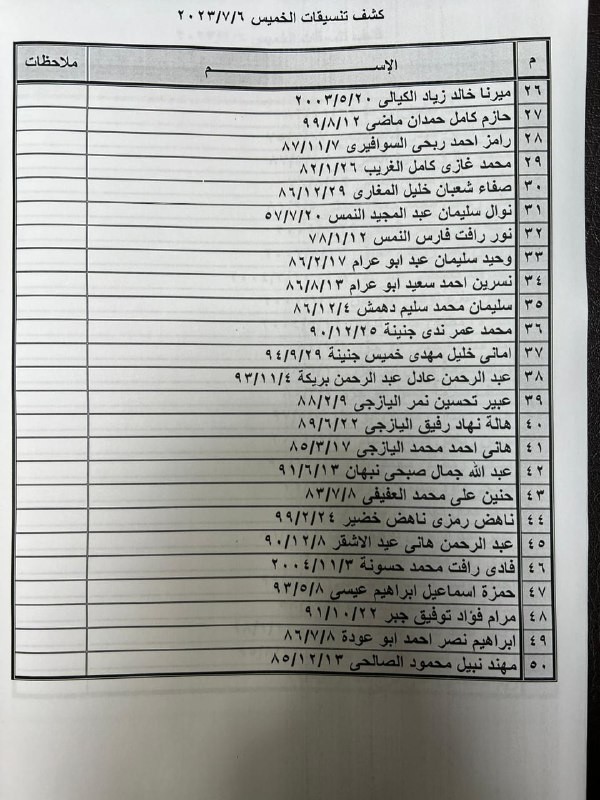 كشف تنسيقات الخميس ٢٠٢٣/٧/٦
م الإســـــم ملاحظات
٢٦ ميرنا خالد زياد الكيالى ٢٠٠٣/٥/٢٠
٢٧ حازم كامل حمدان ماضى ٩٩/٨/١٢
٢٨ رامز احمد ربحى السوافيرى ٨٧/١١/٧
٢٩ محمد غازى كامل الغريب ٨٢/١/٢٦
٣٠ صفاء شعبان خليل المغارى ٨٦/١٢/٢٩
٣١ نوال سليمان عبد المجيد النمس ٥٧/٧/٢٠
٣٢ نور رافت فارس النمس ٧٨/١/١٢
٣٣ وحيد سليمان عبد ابو عرام ٨٦/٢/١٧
٣٤ نسرين احمد سعيد ابو عرام ٨٦/٨/١٣
٣٥ سليمان محمد سليم دهمش ٨٦/١٢/٤
٣٦ محمد عمر ندى جنينة ٩٠/١٢/٢٥
٣٧ امانى خليل مهدى خميس جنينة ٩٤/٩/٢٩
٣٨ عبد الرحمن عادل عبد الرحمن بريكة ٩٣/١١/٤
٣٩ عبير تحسين نمر اليازجى ٨٨/٢/٩
٤٠ هالة نهاد رفيق اليازجى ٨٩/٦/٢٢
٤١ هانى احمد محمد اليازجى ٨٥/٣/١٧
٤٢ عبد الله جمال صبحى نبهان ٩١/٦/١٣
٤٣ حنين على محمد العفيفى ٨٣/٧/٨
٤٤ ناهض رمزى ناهض خضير ٩٩/٢/٢٤
٤٥ عبد الرحمن هانى عيد الاشقر ٩٠/١٢/٨
٤٦ فادى رافت محمد حسونة ٢٠٠٤/١١/٣
٤٧ حمزة اسماعيل ابراهيم عيسى ٩٣/٥/٨
٤٨ مرام فؤاد توفيق جبر ٩١/١٠/٢٢
٤٩ ابراهيم نصر احمد ابو عودة ٨٦/٧/٨
٥٠ مهند نبيل محمود الصالحى ٨٥/١٢/١٣